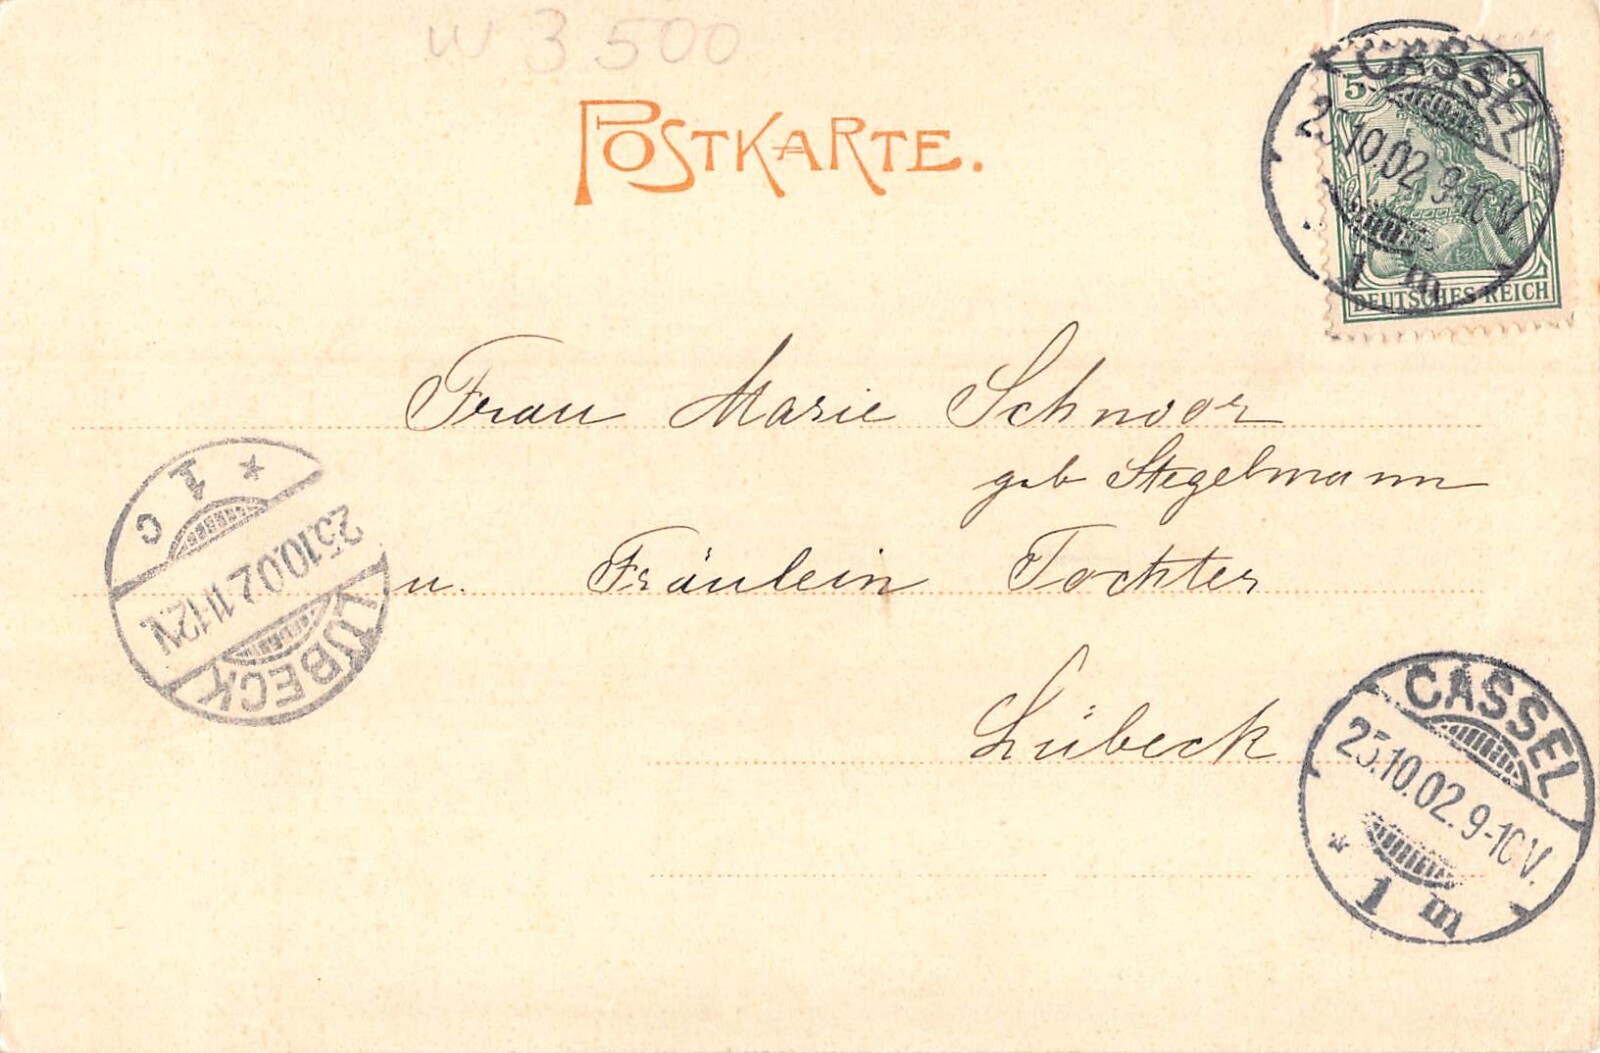 W 3 500
POSTKARTE.
5 5
CASSEL
25.10.02.9-10V.
1 m
DEUTSCHES REICH
Frau Marie Schnoor
geb Stegelmann
u. Fräulein Tochter
Lübeck
* 1 c
25.10.02.11-12V.
LÜBECK
CASSEL
25.10.02.9-10V.
* 1 m